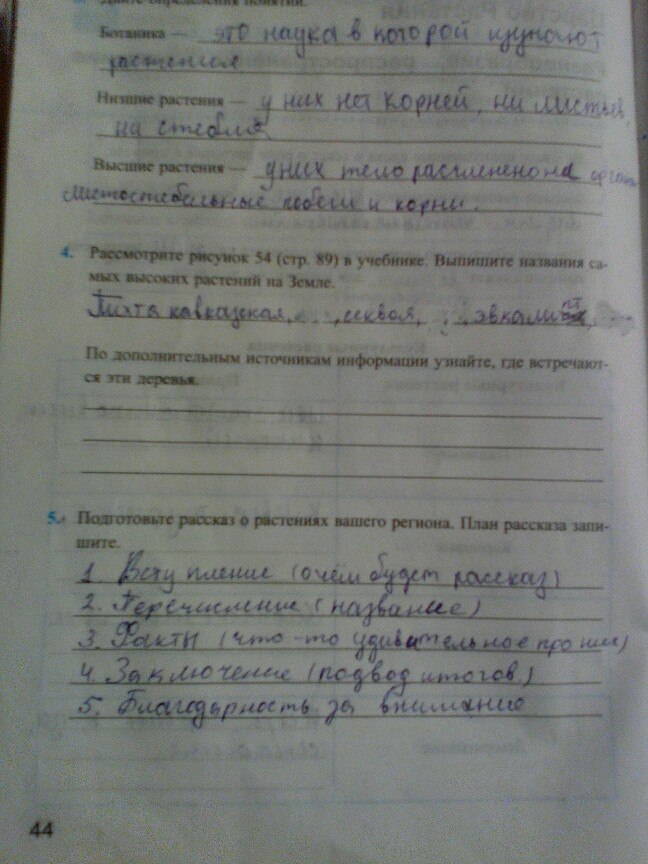 Дайте определения понятий.
Ботаника — это наука в которой изучают
растения
Низшие растения — у них нет корней, ни листьев,
ни стебля
Высшие растения — у них тело расчленено на органы
листостебельные побеги и корни.
4. Рассмотрите рисунок 54 (стр. 89) в учебнике. Выпишите названия са-
мых высоких растений на Земле.
Пихта кавказская, секвоя, эвкалипт
По дополнительным источникам информации узнайте, где встречают-
ся эти деревья.
5. Подготовьте рассказ о растениях вашего региона. План рассказа запи-
шите.
1. Вступление (о чём будет рассказ)
2. Перечисление (название)
3. Факты (что-то удивительное про них)
4. Заключение (подвод итогов)
5. Благодарность за внимание
44